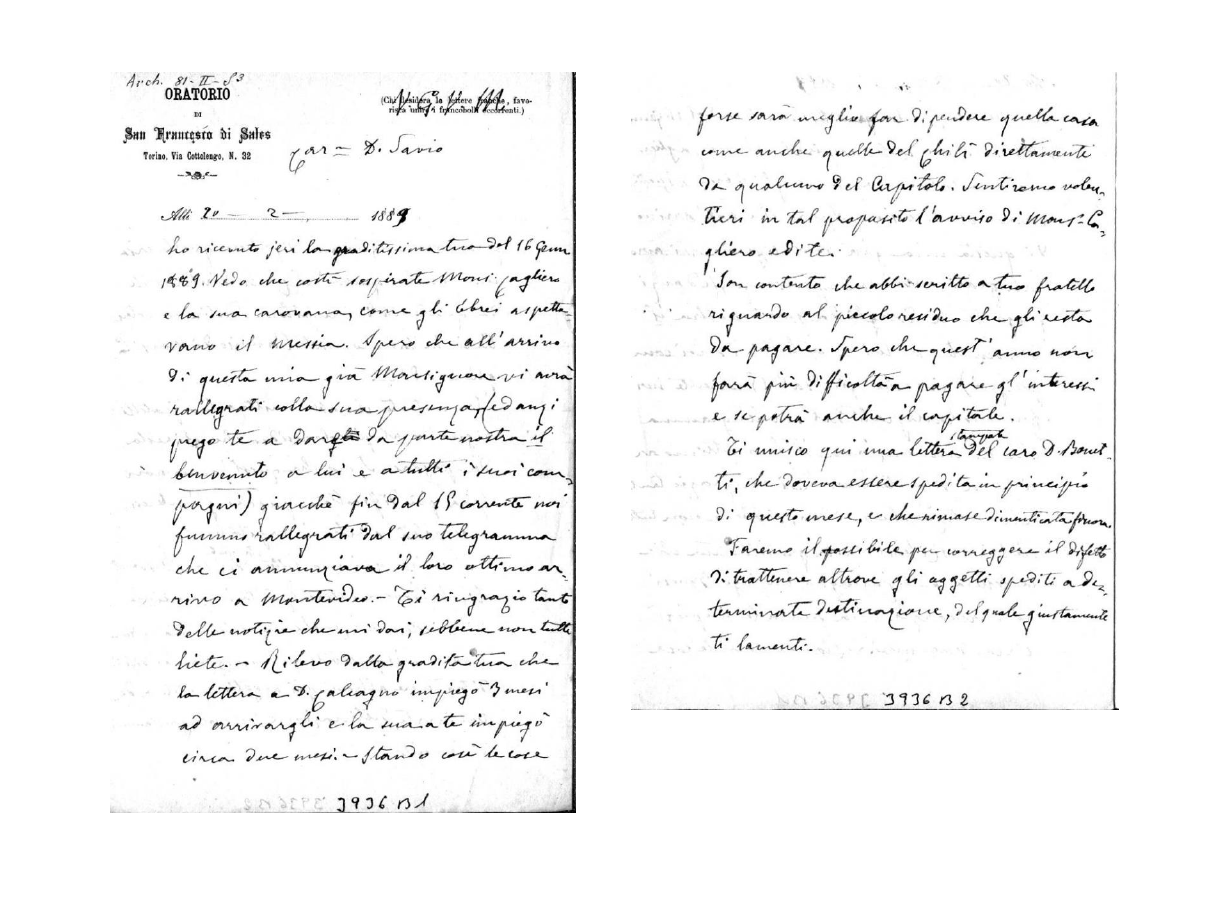 Arch. 81-II-S3
ORATORIO
DI
San Francesco di Sales
Torino, Via Cottolengo, N. 32
(Chi desidera le lettere franche, favo-
risca unire i francobolli occorrenti.)
Car = D. Savio
Alli 20 - 2 - 1889
ho ricevuto jeri la graditissima tua del 16 Genn
1889. Vedo che costì sospirate Monsi. Cagliero
e la sua carovana, come gli Ebrei aspetta-
vano il Messia. Spero che all'arrivo
di questa mia già Monsignore vi avrà
rallegrati colla sua presenza, (ed anzi
prego te a dar da parte nostra il
benvenuto a lui e a tutti i suoi com-
pagni) giacchè fin dal 15 corrente noi
fummo rallegrati dal suo telegramma
che ci annunziava il loro ottimo ar-
rivo a Montevideo. - Ti ringrazio tanto
delle notizie che mi dai, sebbene non tutte
liete. - Rilevo dalla gradita tua che
la lettera a D. Calcagno impiegò 3 mesi
ad arrivargli e la sua a te impiegò
circa due mesi. - Stando così le cose
3936 B1
forse sarà meglio far dipendere quella casa
come anche quelle del Chilì direttamente
da qualcuno del Capitolo. Sentiremo volen-
tieri in tal proposito l'avviso di Mons. Ca-
gliero e di te.
Son contento che abbi scritto a tuo fratello
riguardo al piccolo residuo che gli resta
da pagare. Spero che quest'anno non
farà più difficoltà a pagare gl'interessi
e se potrà anche il capitale.
Ti unisco qui una lettera stampata del caro D. Bonet-
ti, che doveva essere spedita in principio
di questo mese, e che rimase dimenticata finora.
Faremo il possibile per correggere il difetto
di trattenere altrove gli oggetti spediti a de-
terminata destinazione, del quale giustamente
ti lamenti.
3936 B2